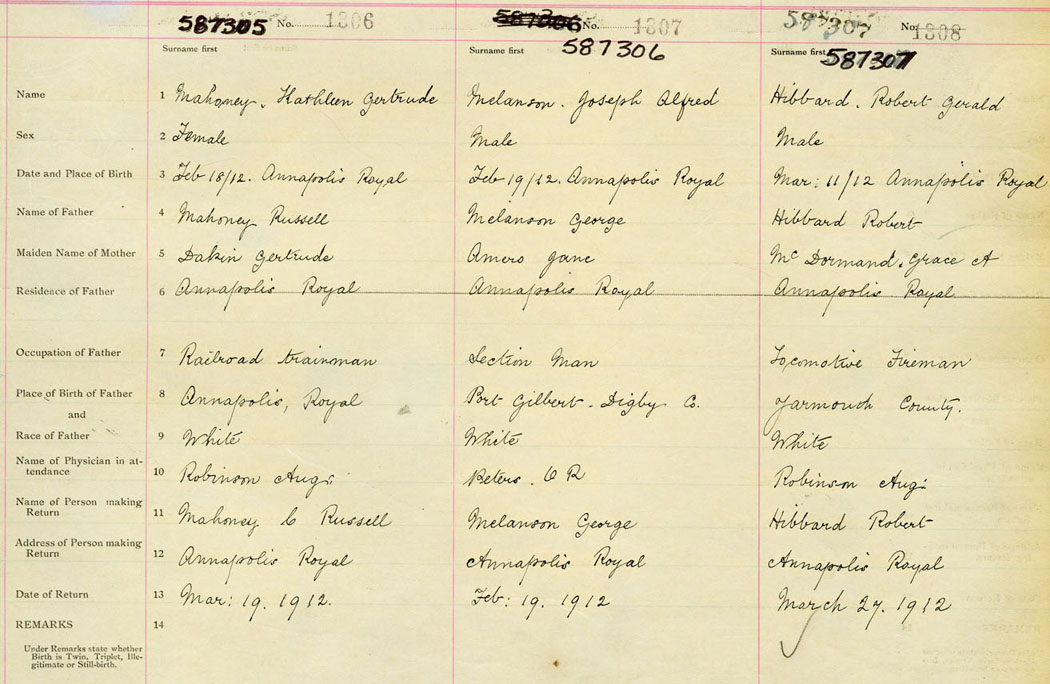 587305 No. 1306 587306 No. 1307 587307 No. 1308
Surname first Surname first 587306 Surname first 587307
Name 1 Mahoney. Kathleen Gertrude Melanson. Joseph Alfred Hibbard. Robert Gerald
Sex 2 Female Male Male
Date and Place of Birth 3 Feb 18/12. Annapolis Royal Feb 19/12. Annapolis Royal Mar: 11/12 Annapolis Royal
Name of Father 4 Mahoney Russell Melanson George Hibbard Robert
Maiden Name of Mother 5 Dakin Gertrude Amero Jane Mc Dormand. Grace A
Residence of Father 6 Annapolis Royal Annapolis Royal Annapolis Royal
Occupation of Father 7 Railroad trainman Section Man Locomotive Fireman
Place of Birth of Father 8 Annapolis, Royal Port Gilbert. Digby Co. Yarmouth County.
and
Race of Father 9 White White White
Name of Physician in at-
tendance 10 Robinson Aug: Peters. O R Robinson Aug:
Name of Person making
Return 11 Mahoney C Russell Melanson George Hibbard Robert
Address of Person making
Return 12 Annapolis Royal Annapolis Royal Annapolis Royal
Date of Return 13 Mar: 19. 1912. Feb: 19. 1912 March 27. 1912
REMARKS 14
Under Remarks state whether
Birth is Twin, Triplet, Ille-
gitimate or Still-birth.